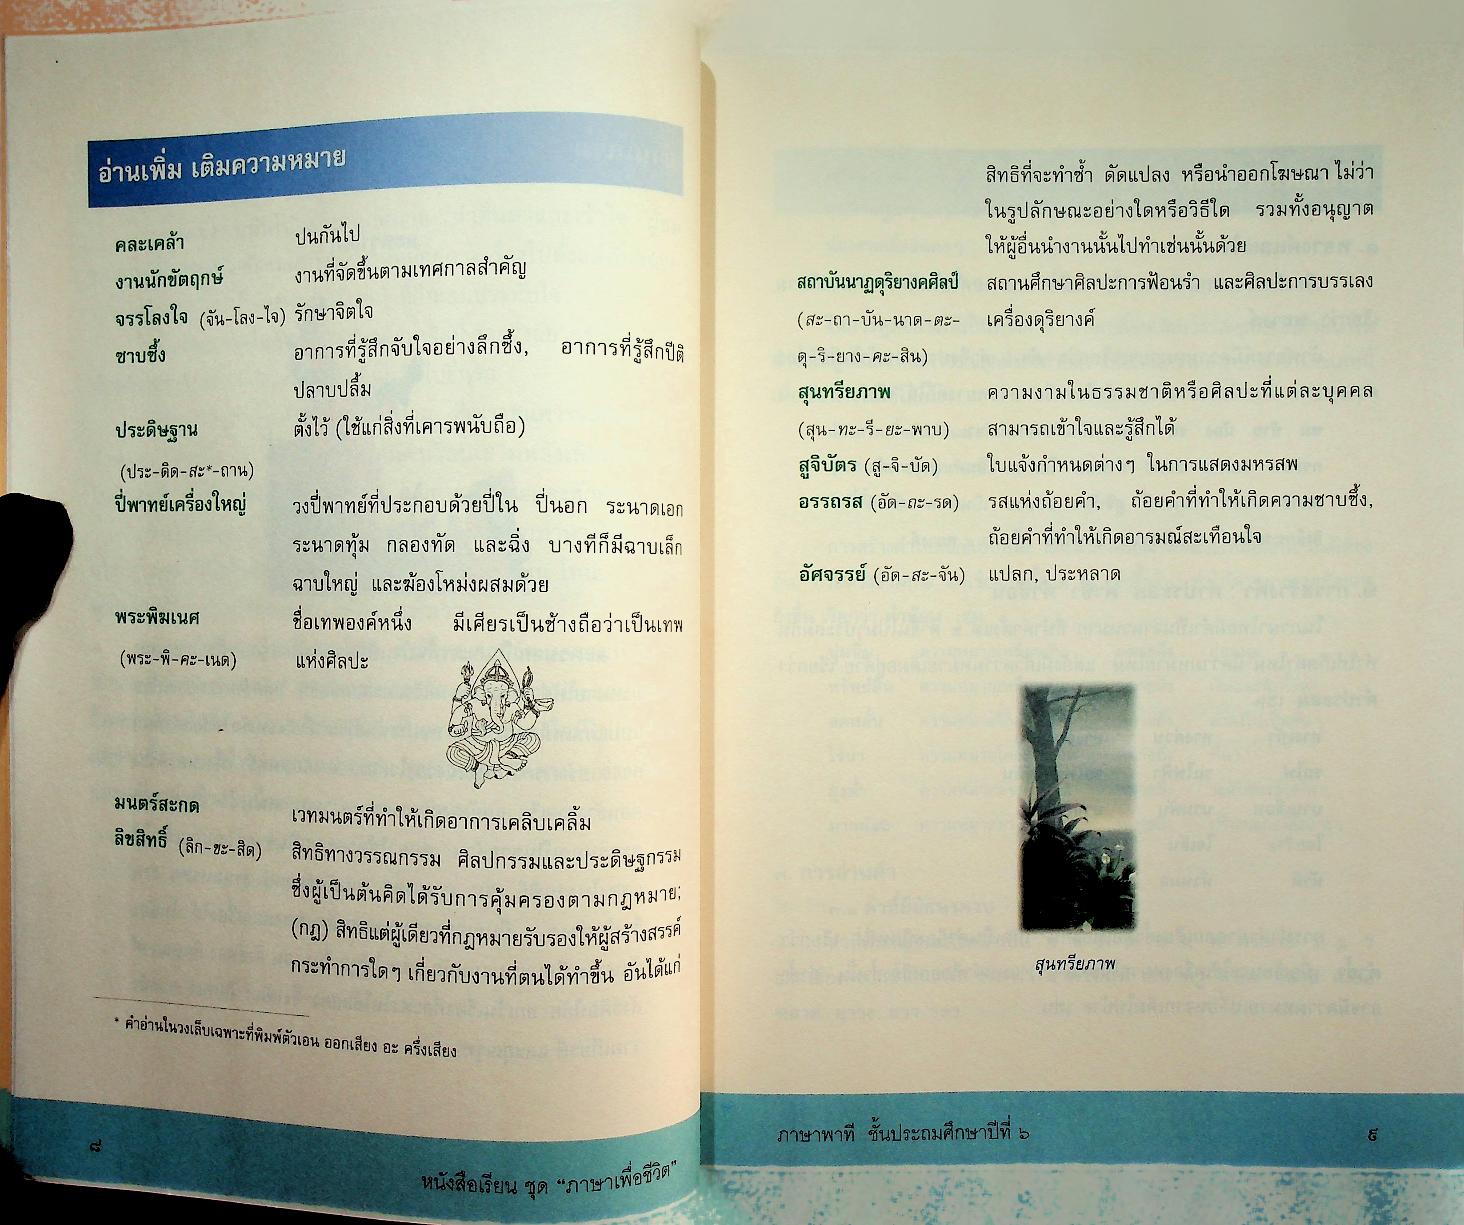 อ่านเพิ่ม เติมความหมาย
คละเคล้า ปนกันไป
งานนักขัตฤกษ์ งานที่จัดขึ้นตามเทศกาลสำคัญ
จรรโลงใจ (จัน-โลง-ไจ) รักษาจิตใจ
ซาบซึ้ง อาการที่รู้สึกจับใจอย่างลึกซึ้ง, อาการที่รู้สึกปีติ
ปลาบปลื้ม
ประดิษฐาน ตั้งไว้ (ใช้แก่สิ่งที่เคารพนับถือ)
(ประ-ดิด-สะ*-ถาน)
ปี่พาทย์เครื่องใหญ่ วงปี่พาทย์ที่ประกอบด้วยปี่ใน ปี่นอก ระนาดเอก
ระนาดทุ้ม กลองทัด และฉิ่ง บางทีก็มีฉาบเล็ก
ฉาบใหญ่ และฆ้องโหม่งผสมด้วย
พระพิฆเนศ ชื่อเทพองค์หนึ่ง มีเศียรเป็นช้างถือว่าเป็นเทพ
(พระ-พิ-คะ-เนด) แห่งศิลปะ
มนตร์สะกด เวทมนตร์ที่ทำให้เกิดอาการเคลิบเคลิ้ม
ลิขสิทธิ์ (ลิก-ขะ-สิด) สิทธิทางวรรณกรรม ศิลปกรรมและประดิษฐกรรม
ซึ่งผู้เป็นต้นคิดได้รับการคุ้มครองตามกฎหมาย;
(กฎ) สิทธิแต่ผู้เดียวที่กฎหมายรับรองให้ผู้สร้างสรรค์
กระทำการใดๆ เกี่ยวกับงานที่ตนได้ทำขึ้น อันได้แก่
* คำอ่านในวงเล็บเฉพาะที่พิมพ์ตัวเอน ออกเสียง อะ ครึ่งเสียง
๘
หนังสือเรียน ชุด "ภาษาเพื่อชีวิต"
สิทธิที่จะทำซ้ำ ดัดแปลง หรือนำออกโฆษณา ไม่ว่า
ในรูปลักษณะอย่างใดหรือวิธีใด รวมทั้งอนุญาต
ให้ผู้อื่นนำงานนั้นไปทำเช่นนั้นด้วย
สถาบันนาฏดุริยางคศิลป์ สถานศึกษาศิลปะการฟ้อนรำ และศิลปะการบรรเลง
(สะ-ถา-บัน-นาด-ตะ- เครื่องดุริยางค์
ดุ-ริ-ยาง-คะ-สิน)
สุนทรียภาพ ความงามในธรรมชาติหรือศิลปะที่แต่ละบุคคล
(สุน-ทะ-รี-ยะ-พาบ) สามารถเข้าใจและรู้สึกได้
สูจิบัตร (สู-จิ-บัด) ใบแจ้งกำหนดต่างๆ ในการแสดงมหรสพ
อรรถรส (อัด-ถะ-รด) รสแห่งถ้อยคำ, ถ้อยคำที่ทำให้เกิดความซาบซึ้ง,
ถ้อยคำที่ทำให้เกิดอารมณ์สะเทือนใจ
อัศจรรย์ (อัด-สะ-จัน) แปลก, ประหลาด
สุนทรียภาพ
ภาษาพาที ชั้นประถมศึกษาปีที่ ๖
๙